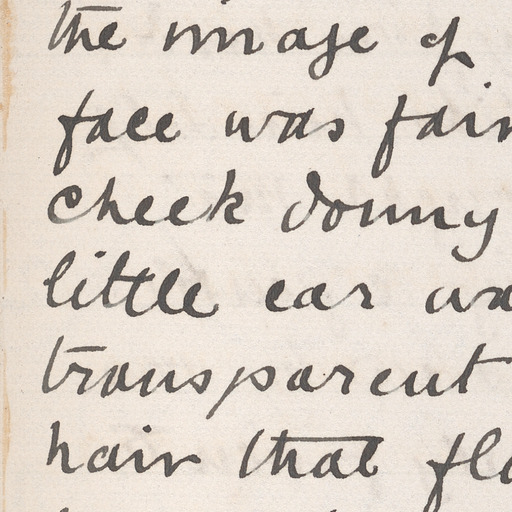 the image of
face was fair
cheek downy
little ear wa
transparent
hair that flo